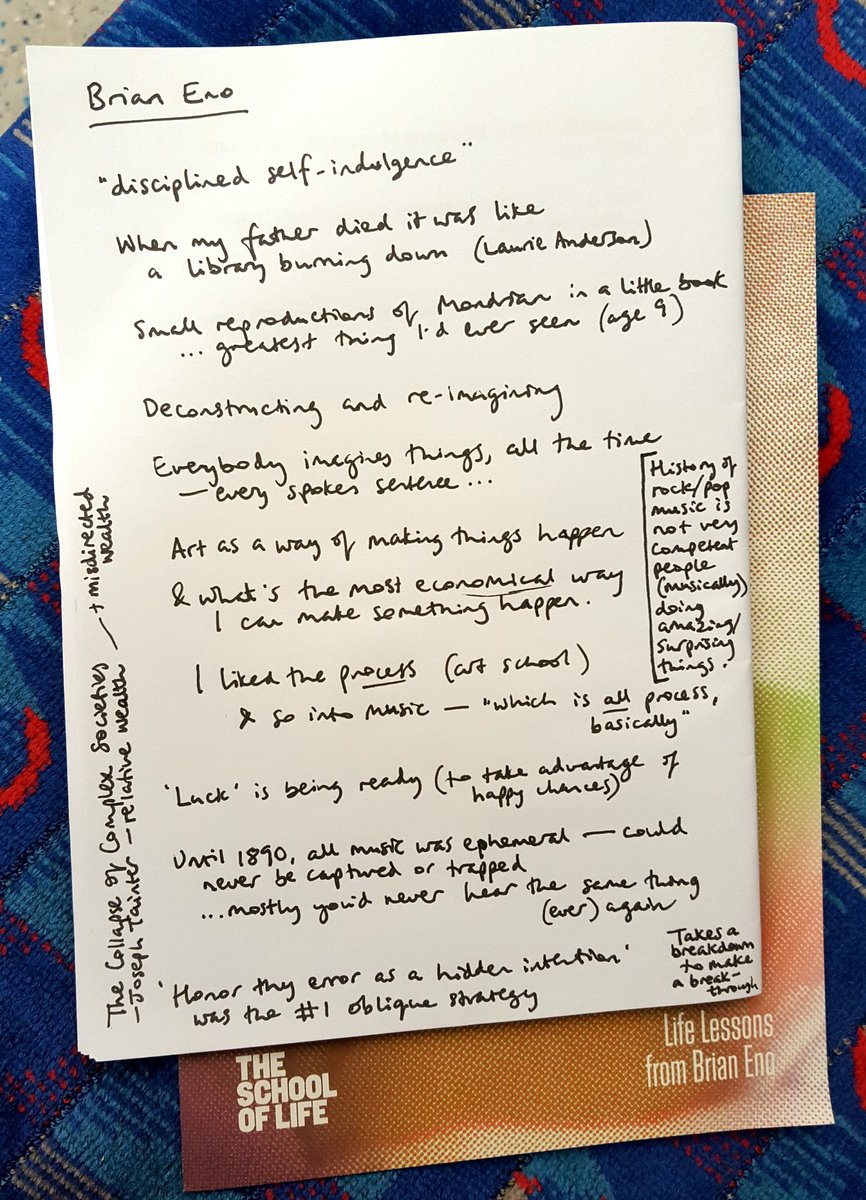 Brian Eno
"disciplined self-indulgence"
When my father died it was like
a library burning down (Laurie Anderson)
Small reproductions of Mondrian in a little book
... greatest thing I'd ever seen (age 9)
Deconstructing and re-imagining
Everybody imagines things, all the time
— every spoken sentence ...
Art as a way of making things happen
& what's the most economical way
I can make something happen.
[History of
rock/pop
music is
not very
competent
people
(musically)
doing
amazing/
surprising
things.
I liked the process (art school)
& so into music — "which is all process,
basically"
'Luck' is being ready (to take advantage of
happy chances)
Until 1890, all music was ephemeral — could
never be captured or trapped
...mostly you'd never hear the same thing
(ever) again
'Honor thy error as a hidden intention'
was the #1 oblique strategy
Takes a
breakdown
to make
a break-
through
The Collapse of Complex Societies
— Joseph Tainter — relative wealth — + misdirected
wealth
THE
SCHOOL
OF LIFE
Life Lessons
from Brian Eno